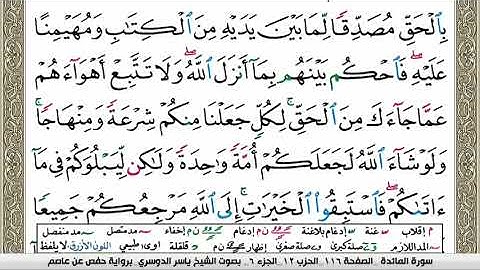 بِٱلْحَقِّ مُصَدِّقًا لِّمَا بَيْنَ يَدَيْهِ مِنَ ٱلْكِتَٰبِ وَمُهَيْمِنًا
عَلَيْهِ ۖ فَٱحْكُم بَيْنَهُم بِمَآ أَنزَلَ ٱللَّهُ ۖ وَلَا تَتَّبِعْ أَهْوَآءَهُمْ
عَمَّا جَآءَكَ مِنَ ٱلْحَقِّ ۚ لِكُلٍّ جَعَلْنَا مِنكُمْ شِرْعَةً وَمِنْهَاجًا ۚ
وَلَوْ شَآءَ ٱللَّهُ لَجَعَلَكُمْ أُمَّةً وَٰحِدَةً وَلَٰكِن لِّيَبْلُوَكُمْ فِى مَآ
ءَاتَىٰكُمْ ۖ فَٱسْتَبِقُوا۟ ٱلْخَيْرَٰتِ ۚ إِلَى ٱللَّهِ مَرْجِعُكُمْ جَمِيعًا
م إقلاب غنة إدغام بلاغنة ن م إدغام إخفاء مد متصل مد منفصل
المد اللازم صلة كبرى وصلة صغرى إظهار ن م قلقلة اوى طبيعي اللون الأزرق لا يلفظ
سورة المائدة . الصفحة ١١٦ . الحزب ١٢ . الجزء ٦ . بصوت الشيخ ياسر الدوسري . برواية حفص عن عاصم